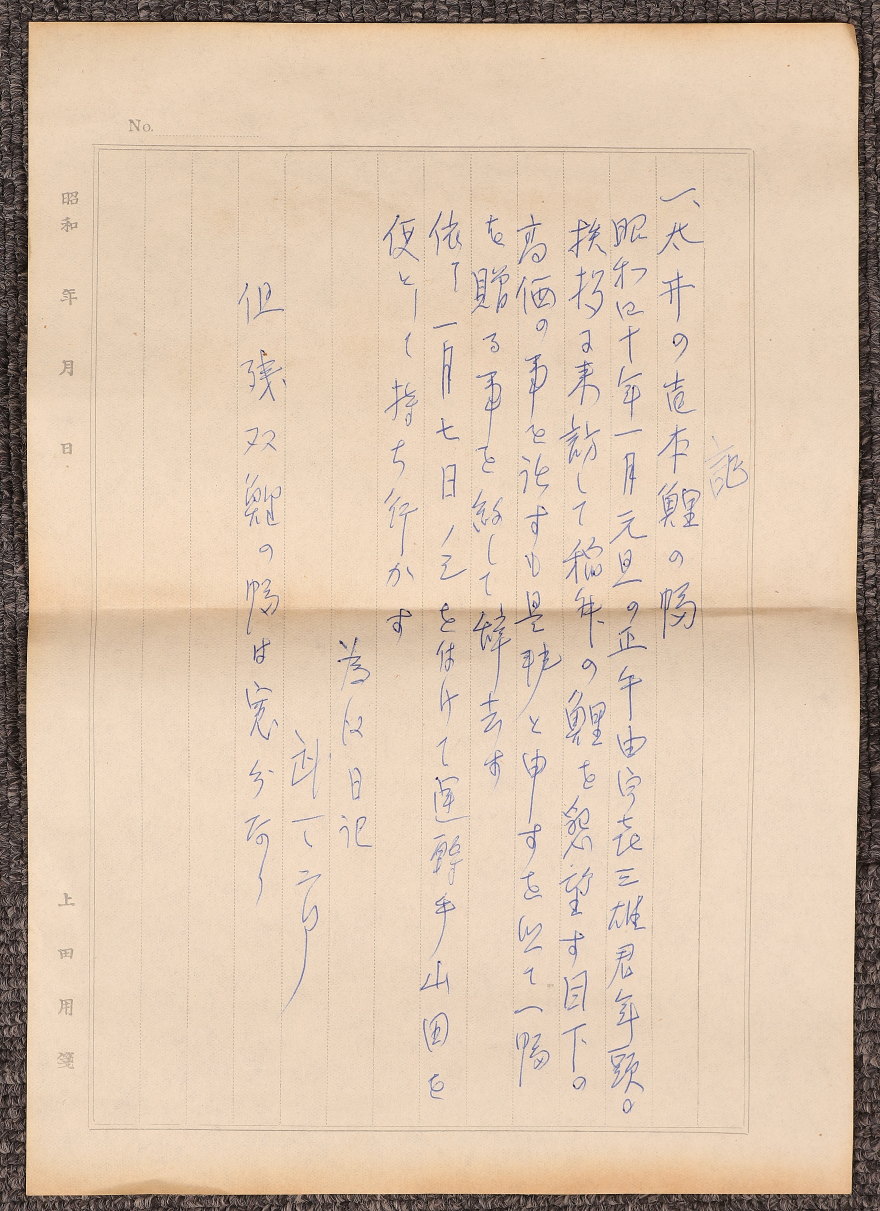 No.
記
一、太井の直本鯉の幅
昭和四十年一月元旦の正午由宇喜三雄君年頭の
挨拶に来訪して稲舟の鯉を懇望す目下の
高価の事を話すも是非と申すを以て一幅
を贈る事を約して辞去す
依て一月七日ノシを付けて運転手山田を
便として持ち行かす
為後日記
武一二郎
但残双鯉の幅は寛分なり
昭和 年 月 日
上田用箋